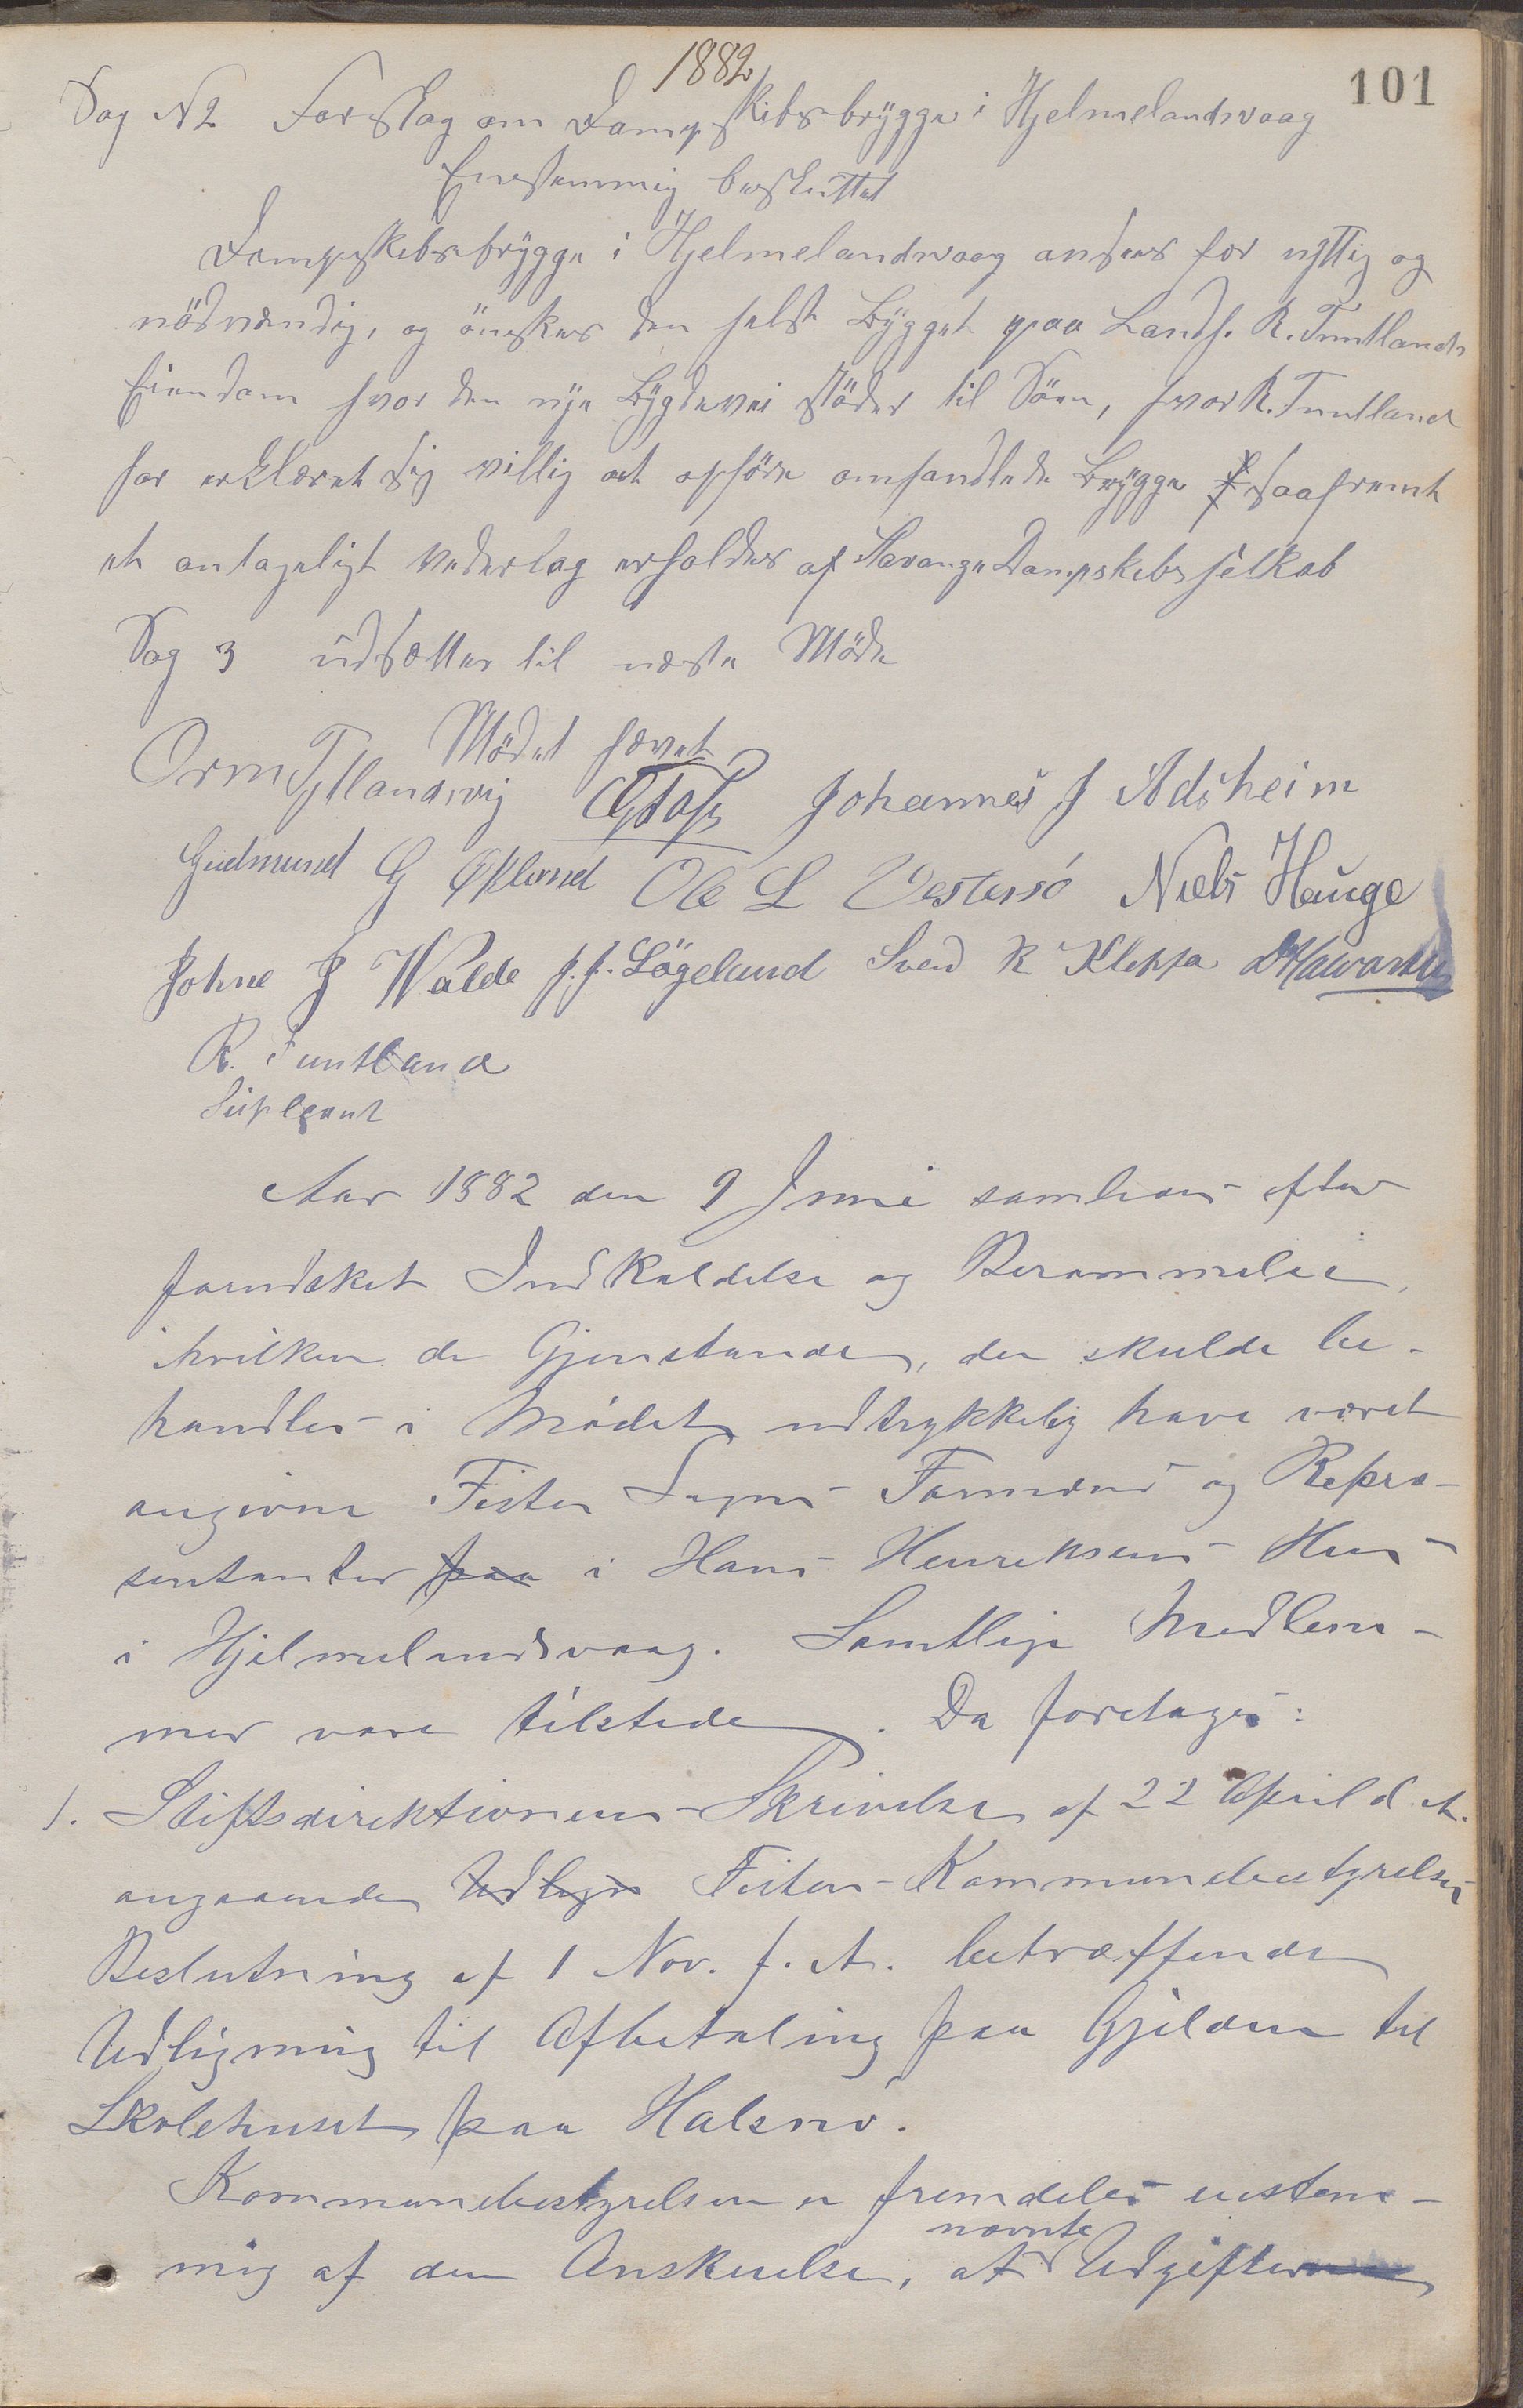 1882
101
Sag N 2 Forslag om Dampskibsbrygge i Hjelmelandsvaag
Enestemmig besluttet
Dampskibsbrygge i Hjelmelandsvaag ansees for nyttig og
nödvendig, og önskes den helst bygget paa Landh. R. Tuntlands
Eiendom hvor den nye Bygdevei stöder til Söen, hvor R. Tuntland
har erklæret sig villig at opföre omhandlede Brygge saafremt
et antageligt vederlag erholdes af Stavange Dampskibsselkab
Sag 3 udsættes til næste Möde
Mödet hævet
Orm Tytlandsvig Johannes J Adsheim
Gudmund G Økland Ole L Vestersö Niels Hauge
Johne J Walde J. J. Lögeland Svend R Kleppa
R. Tuntland
Supleant
Aar 1882 den 9 Juni samledes efter
forudsket Indkaldelse og Berammelse,
i hvilken de Gjenstande, der skulde be-
handles i Mödet udtrykkelig have været
angivne Fister Sogns Formænd og Repræ-
sentanter paa i Hans Henriksens Hus
i Hjelmelandsvaag. Samtlige Medlem-
mer vare tilstede. Da foretages:
1. Stiftsdirektionens Skrivelse af 22 April d. A.
angaaende Udlign Fister Kommunebestyrelses
Beslutning af 1 Nov. f. A. betræffende
Udligning til Afbetaling paa Gjelden til
Skolehuset paa Halsnö.
Kommunebestyrelsen er fremdeles enstem-
mig af den Anskuelse, at nævnte Udgifter